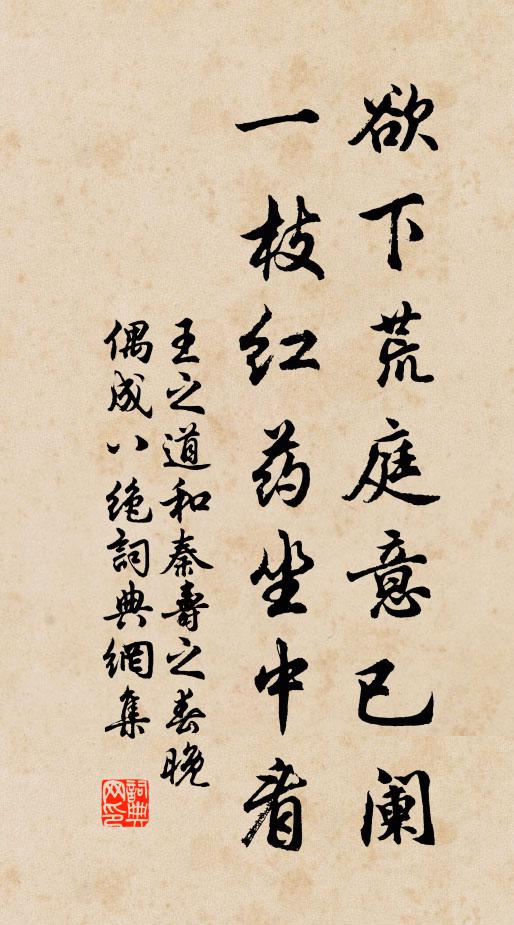 欲下荒庭意已阑
一枝红药坐中看
王之道和秦寿之春晚
偶成八绝詞典網集
詞典
网印